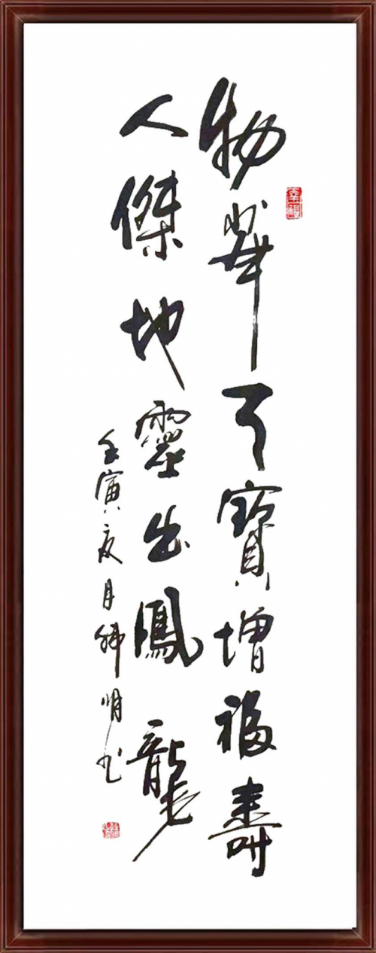 物華天寶增福壽
人傑地靈出鳳龍
壬寅夏月韓明书